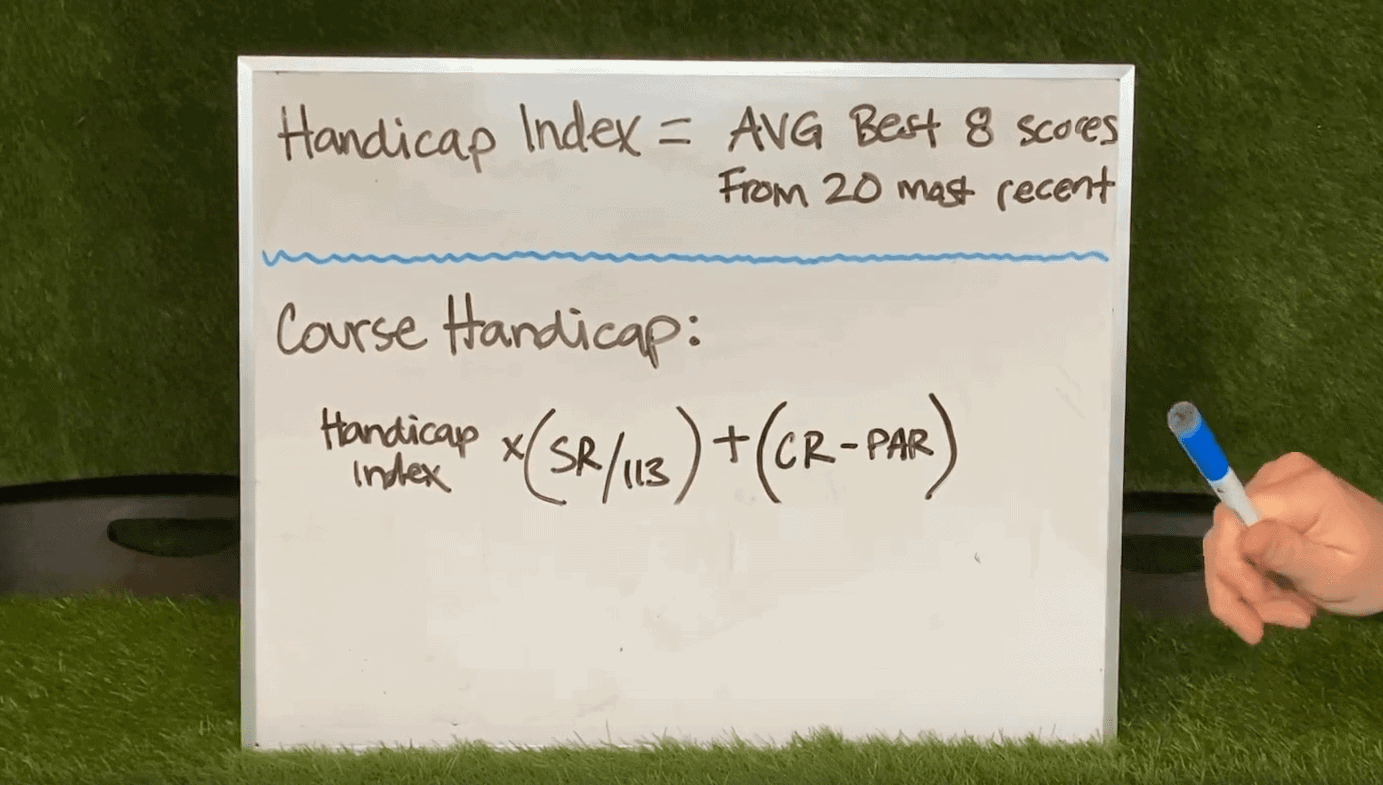 Handicap Index = AVG Best 8 scores
From 20 most recent
Course Handicap:
Handicap Index × (SR/113) + (CR-PAR)